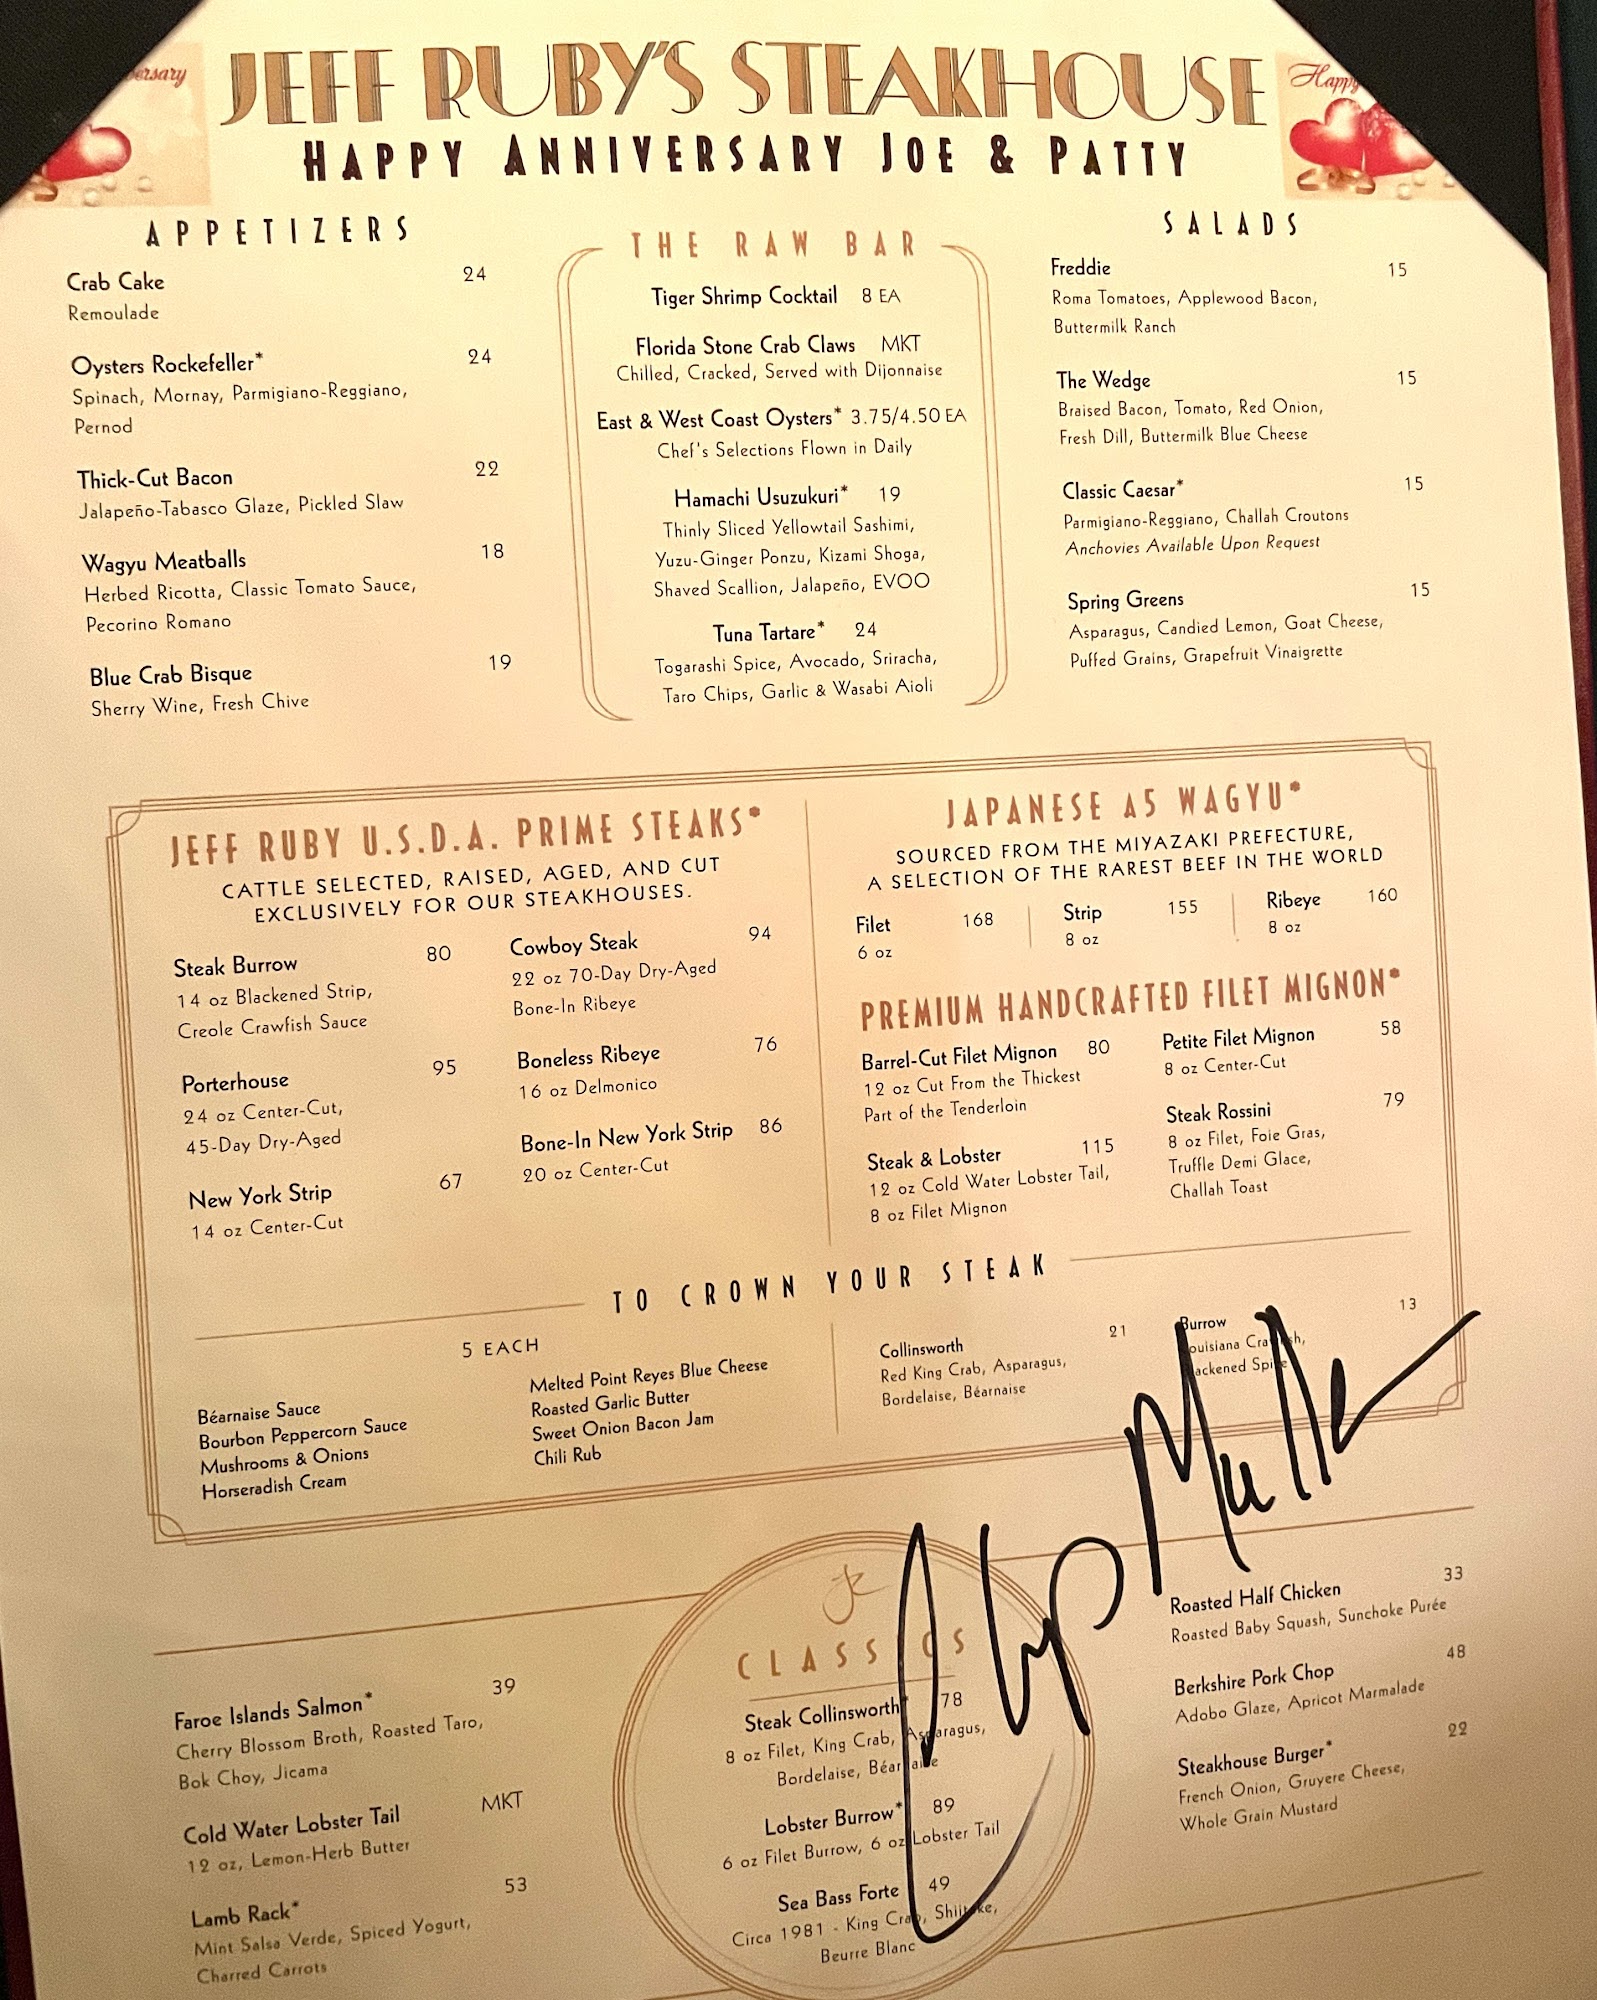 ersary
Happy
JEFF RUBY'S STEAKHOUSE
HAPPY ANNIVERSARY JOE & PATTY
APPETIZERS
Crab Cake 24
Remoulade
Oysters Rockefeller* 24
Spinach, Mornay, Parmigiano-Reggiano,
Pernod
Thick-Cut Bacon 22
Jalapeño-Tabasco Glaze, Pickled Slaw
Wagyu Meatballs 18
Herbed Ricotta, Classic Tomato Sauce,
Pecorino Romano
Blue Crab Bisque 19
Sherry Wine, Fresh Chive
THE RAW BAR
Tiger Shrimp Cocktail 8 EA
Florida Stone Crab Claws MKT
Chilled, Cracked, Served with Dijonnaise
East & West Coast Oysters* 3.75/4.50 EA
Chef's Selections Flown in Daily
Hamachi Usuzukuri* 19
Thinly Sliced Yellowtail Sashimi,
Yuzu-Ginger Ponzu, Kizami Shoga,
Shaved Scallion, Jalapeño, EVOO
Tuna Tartare* 24
Togarashi Spice, Avocado, Sriracha,
Taro Chips, Garlic & Wasabi Aioli
SALADS
Freddie 15
Roma Tomatoes, Applewood Bacon,
Buttermilk Ranch
The Wedge 15
Braised Bacon, Tomato, Red Onion,
Fresh Dill, Buttermilk Blue Cheese
Classic Caesar* 15
Parmigiano-Reggiano, Challah Croutons
Anchovies Available Upon Request
Spring Greens 15
Asparagus, Candied Lemon, Goat Cheese,
Puffed Grains, Grapefruit Vinaigrette
JEFF RUBY U.S.D.A. PRIME STEAKS*
CATTLE SELECTED, RAISED, AGED, AND CUT
EXCLUSIVELY FOR OUR STEAKHOUSES.
Steak Burrow 80
14 oz Blackened Strip,
Creole Crawfish Sauce
Porterhouse 95
24 oz Center-Cut,
45-Day Dry-Aged
New York Strip 67
14 oz Center-Cut
Cowboy Steak 94
22 oz 70-Day Dry-Aged
Bone-In Ribeye
Boneless Ribeye 76
16 oz Delmonico
Bone-In New York Strip 86
20 oz Center-Cut
JAPANESE A5 WAGYU*
SOURCED FROM THE MIYAZAKI PREFECTURE,
A SELECTION OF THE RAREST BEEF IN THE WORLD
Filet 168
6 oz
Strip 155
8 oz
Ribeye 160
8 oz
PREMIUM HANDCRAFTED FILET MIGNON*
Barrel-Cut Filet Mignon 80
12 oz Cut From the Thickest
Part of the Tenderloin
Steak & Lobster 115
12 oz Cold Water Lobster Tail,
8 oz Filet Mignon
Petite Filet Mignon 58
8 oz Center-Cut
Steak Rossini 79
8 oz Filet, Foie Gras,
Truffle Demi Glace,
Challah Toast
TO CROWN YOUR STEAK
5 EACH
Béarnaise Sauce
Bourbon Peppercorn Sauce
Mushrooms & Onions
Horseradish Cream
Melted Point Reyes Blue Cheese
Roasted Garlic Butter
Sweet Onion Bacon Jam
Chili Rub
Collinsworth 21
Red King Crab, Asparagus,
Bordelaise, Béarnaise
Burrow 13
Louisiana Crawfish,
Blackened Spice
Faroe Islands Salmon* 39
Cherry Blossom Broth, Roasted Taro,
Bok Choy, Jicama
Cold Water Lobster Tail MKT
12 oz, Lemon-Herb Butter
Lamb Rack* 53
Mint Salsa Verde, Spiced Yogurt,
Charred Carrots
JR
CLASSICS
Steak Collinsworth* 78
8 oz Filet, King Crab, Asparagus,
Bordelaise, Béarnaise
Lobster Burrow* 89
6 oz Filet Burrow, 6 oz Lobster Tail
Sea Bass Forte 49
Circa 1981 - King Crab, Shiitake,
Beurre Blanc
Roasted Half Chicken 33
Roasted Baby Squash, Sunchoke Purée
Berkshire Pork Chop 48
Adobo Glaze, Apricot Marmalade
Steakhouse Burger* 22
French Onion, Gruyere Cheese,
Whole Grain Mustard